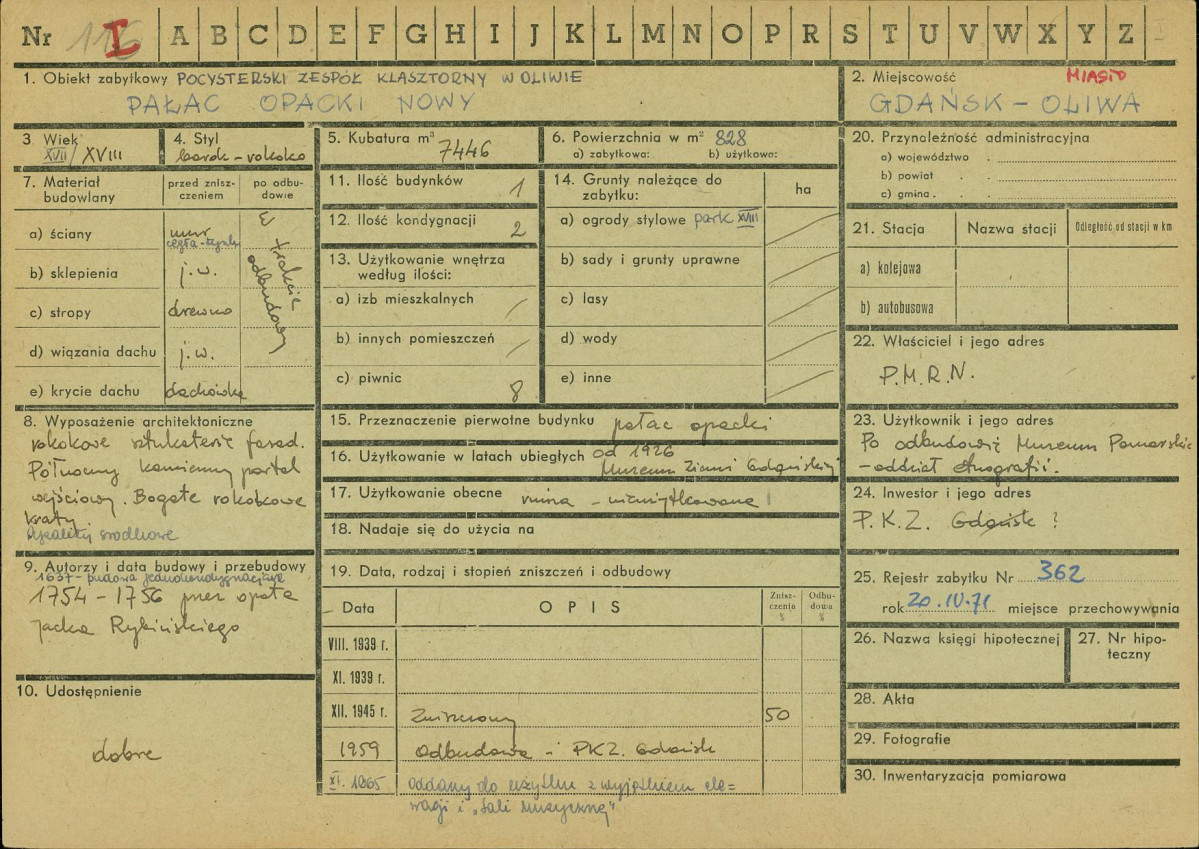 Nr 116 I A B C D E F G H I J K L M N O P R S T U V W X Y Z
1. Obiekt zabytkowy POCYSTERSKI ZESPÓŁ KLASZTORNY W OLIWIE
PAŁAC OPACKI NOWY
2. Miejscowość MIASTO
GDAŃSK – OLIWA
3 Wiek
XVII/XVIII
4. Styl
barok – rokoko
5. Kubatura m³ 7446
6. Powierzchnia w m² 828
a) zabytkowa: b) użytkowa:
7. Materiał budowlany
przed zniszczeniem
po odbudowie
a) ściany mur
cegła-tynk
b) sklepienia j.w.
c) stropy drewno
d) wiązania dachu j.w.
e) krycie dachu dachówka
W trakcie odbudowy
8. Wyposażenie architektoniczne
rokokowe sztukaterie fasad.
Północny kamienny portal
wejściowy. Bogate rokokowe
kraty.
9. Autorzy i data budowy i przebudowy
1637 – budowa jednokondygnacyjna
1754 – 1756 przez opata
Jacka Rybińskiego
10. Udostępnienie
dobre
11. Ilość budynków 1
12. Ilość kondygnacji 2
13. Użytkowanie wnętrza
według ilości:
a) izb mieszkalnych /
b) innych pomieszczeń /
c) piwnic 8
14. Grunty należące do
zabytku:
ha
a) ogrody stylowe park XVIII
b) sady i grunty uprawne
c) lasy
d) wody
e) inne
15. Przeznaczenie pierwotne budynku pałac opacki
16. Użytkowanie w latach ubiegłych od 1926
Muzeum Ziemi Gdańskiej
17. Użytkowanie obecne ruina – nieużytkowana
18. Nadaje się do użycia na
19. Data, rodzaj i stopień zniszczeń i odbudowy
Data O P I S Zniszczenia % Odbudowa %
VIII. 1939 r.
XI. 1939 r.
XII. 1945 r. Zniszczony 50
1959 Odbudowa – PKZ. Gdańsk
XI. 1965 oddany do użytku z wyjątkiem ele=
wacji i „Sali Muzycznej"
20. Przynależność administracyjna
a) województwo
b) powiat
c) gmina
21. Stacja Nazwa stacji Odległość od stacji w km
a) kolejowa
b) autobusowa
22. Właściciel i jego adres
P.M.R.N.
23. Użytkownik i jego adres
Po odbudowie Muzeum Pomorskie
– oddział etnografii.
24. Inwestor i jego adres
P.K.Z. Gdańsk ?
25. Rejestr zabytku Nr 362
rok 20.IV.71 miejsce przechowywania
26. Nazwa księgi hipotecznej
27. Nr hipoteczny
28. Akta
29. Fotografie
30. Inwentaryzacja pomiarowa